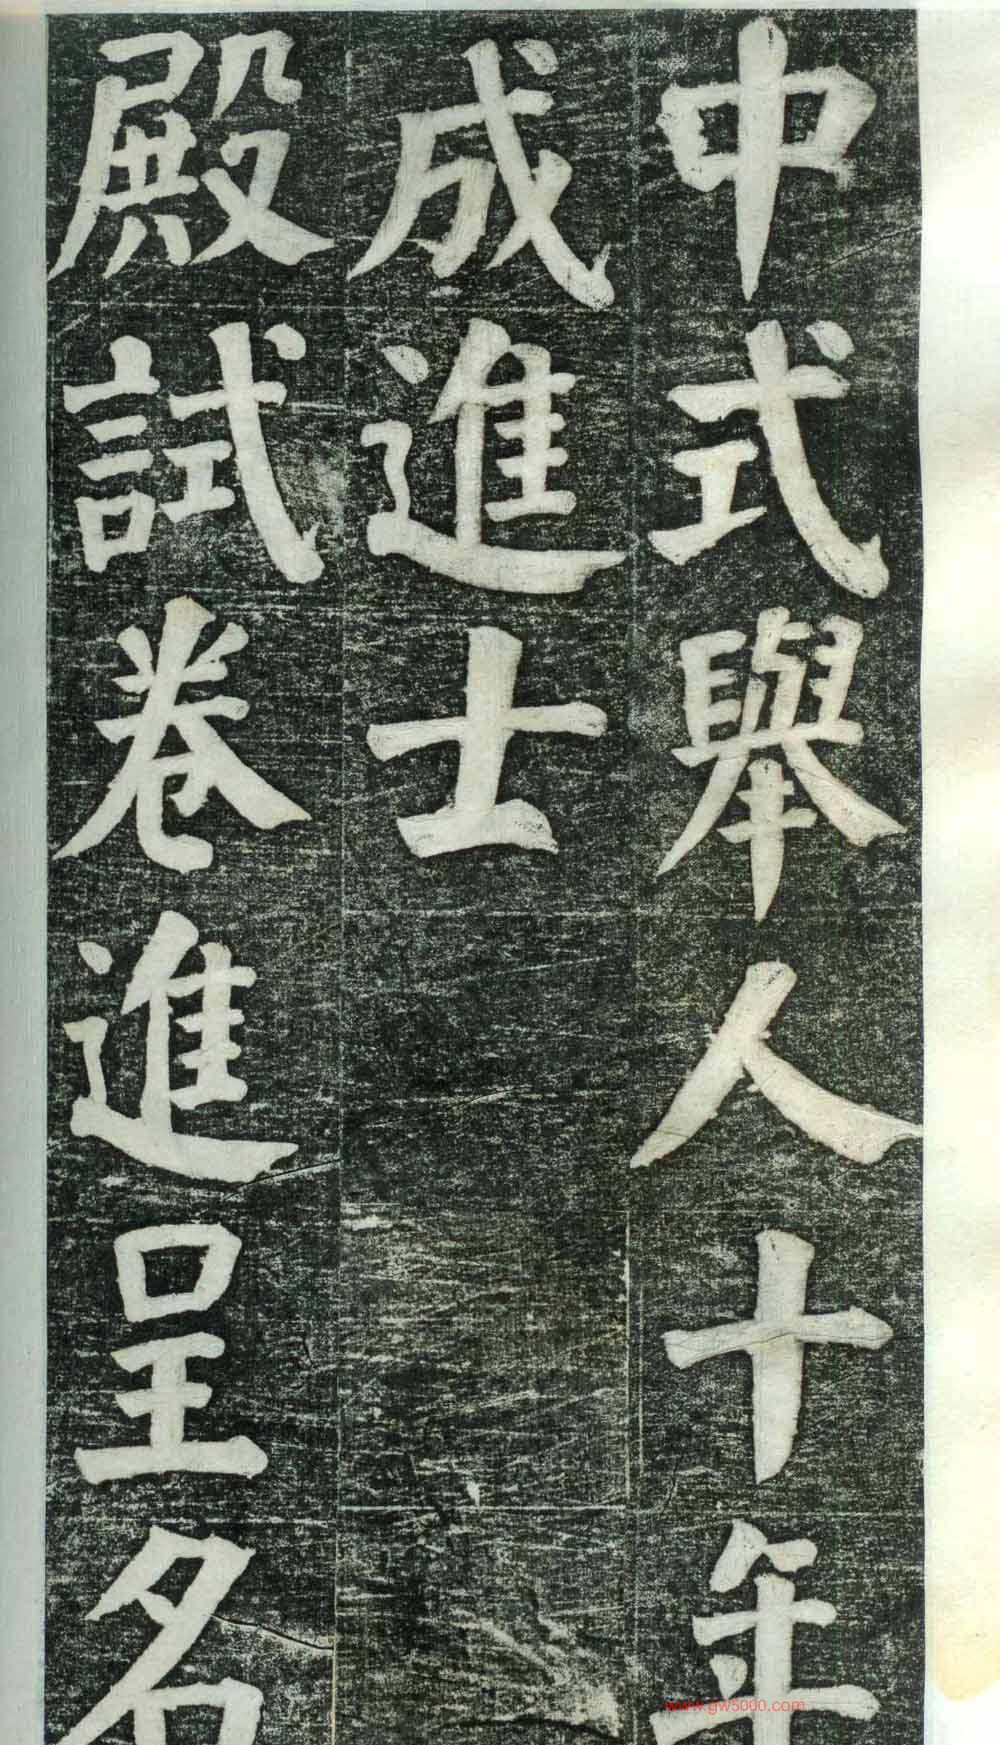 中式舉人十年
成進士
殿試卷進呈名
www.gw5000.com